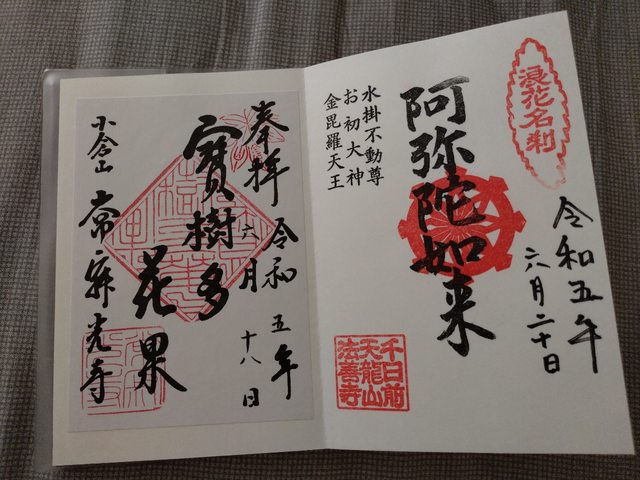 浪花名刹
令和五年
六月二十日
阿弥陀如来
水掛不動尊
お初大神
金毘羅天王
千日前
天龍山
法善寺
奉拝
令和五年
六月十八日
寳樹多
花果
小倉山
常寂光寺